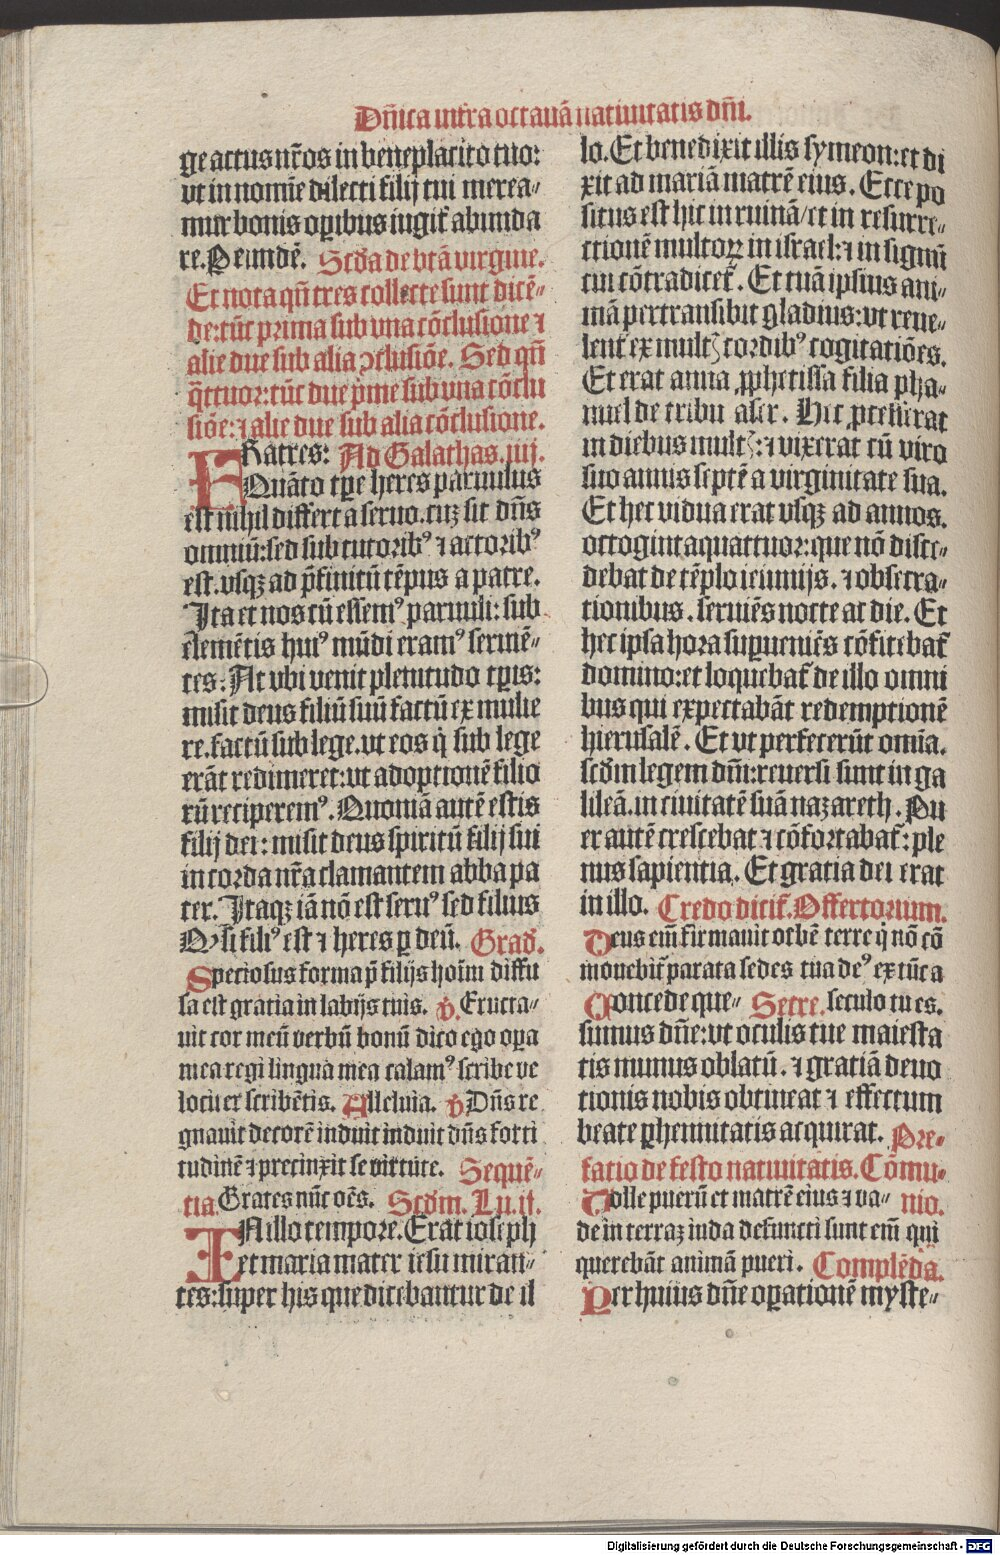 Dñica infra octauā natiuitatis dñi.
ge actus nr̄os in beneplacito tuo:
vt in nomīe dilecti filij tui merea⸗
mur bonis oꝑibus iugit̄ abunda
re. Per eundē. Scd̄a de btā virgine.
Et nota qn̄ tres collecte sunt dicē⸗
de: tūc prima sub vna cōclusione ⁊
alie due sub alia ꝯclusiōe. Sed qn̄
q̄ttuor: tūc due pͥme sub vna cōclu
siōe: ⁊ alie due sub alia cōclusione.
FRatres: Ad Galathas .iiij.
Quāto tꝑe heres paruulus
est nihil differt a seruo. cuꝫ sit dn̄s
omniū: sed sub tutoribꝰ ⁊ actoribꝰ
est. vsqꝫ ad p̄finitū tēpus a patre.
Ita et nos cū essemꝰ paruuli: sub
elemētis huiꝰ mūdi eramꝰ seruiē⸗
tes. At vbi venit plenitudo tꝑis:
misit deus filiū suū factū ex mulie
re. factū sub lege. vt eos q̇ sub lege
erāt redimeret: vt adoptionē filio
rū reciperemꝰ. Quoniā autē estis
filij dei: misit deus spiritū filij sui
in corda nr̄a clamantem abba pa
ter. Itaqꝫ iā nō est seruꝰ sed filius
Qꝫ si filiꝰ est ⁊ heres ꝑ deū. Grad̄.
Speciosus forma p̄ filijs hoīm diffu
sa est gratia in labijs tuis. ꝟ. Eructa⸗
uit cor meū verbū bonū dico ego oꝑa
mea regi lingua mea calamꝰ scribe ve
lociter scribētis. Alleluia. ꝟ Dn̄s re
gnauit decorē induit induit dn̄s forti
tudinē ⁊ precinxit se virtute. Sequē⸗
tia Grates nūc oēs. Scd̄m. Lu. ij.
IN illo tempore. Erat ioseph
et maria mater iesu miran⸗
tes: super his que dicebantur de il
lo. Et benedixit illis symeon: et di
xit ad mariā matrē eius. Ecce po
situs est hic in ruinā/ et in resurre⸗
ctionē multoꝝ in israel: ⁊ in signū
cui cōtradicet̄. Et tuā ipsius ani⸗
mā pertransibit gladius: vt reue⸗
lent̄ ex multꝭ cordibꝰ cogitatiōes.
Et erat anna ꝓphetissa filia pha⸗
nuel de tribu aser. Hec ꝓcesserat
in diebus multꝭ: ⁊ vixerat cū viro
suo annis septē a virginitate sua.
Et hec vidua erat vsqꝫ ad annos.
octogintaquattuor: que nō disce⸗
debat de tēplo ieiunijs. ⁊ obsecra⸗
tionibus. seruiēs nocte ac die. Et
hec ipsa hora suꝑueniēs cōfitebat̄
domino: et loquebat̄ de illo omni
bus qui expectabāt redemptionē
hierusalē. Et vt perfecerūt omīa.
scd̄m legem dn̄i: reuersi sunt in ga
lileā. in ciuitatē suā nazareth. Pu
er autē crescebat ⁊ cōfortabat̄: ple
nus sapientia. Et gratia dei erat
in illo. Credo dicit̄. Offertorium.
Deus em̄ firmauit orbē terre q̇ nō cō
mouebit̄ parata sedes tua deꝰ ex tūc a
Concede que⸗ Secre. seculo tu es.
sumus dn̄e: vt oculis tue maiesta
tis munus oblatū. ⁊ gratiā deuo
tionis nobis obtineat ⁊ effectum
beate ꝑhennitatis acquirat. Pre⸗
fatio de festo natiuitatis. Cōmu⸗
Tolle puerū et matrē eius ⁊ va⸗ nio.
de in terraꝫ iuda defuncti sunt em̄ qui
querebāt animā pueri. Complēda.
Per huius dn̄e oꝑationē myste⸗
Digitalisierung gefördert durch die Deutsche Forschungsgemeinschaft - DFG